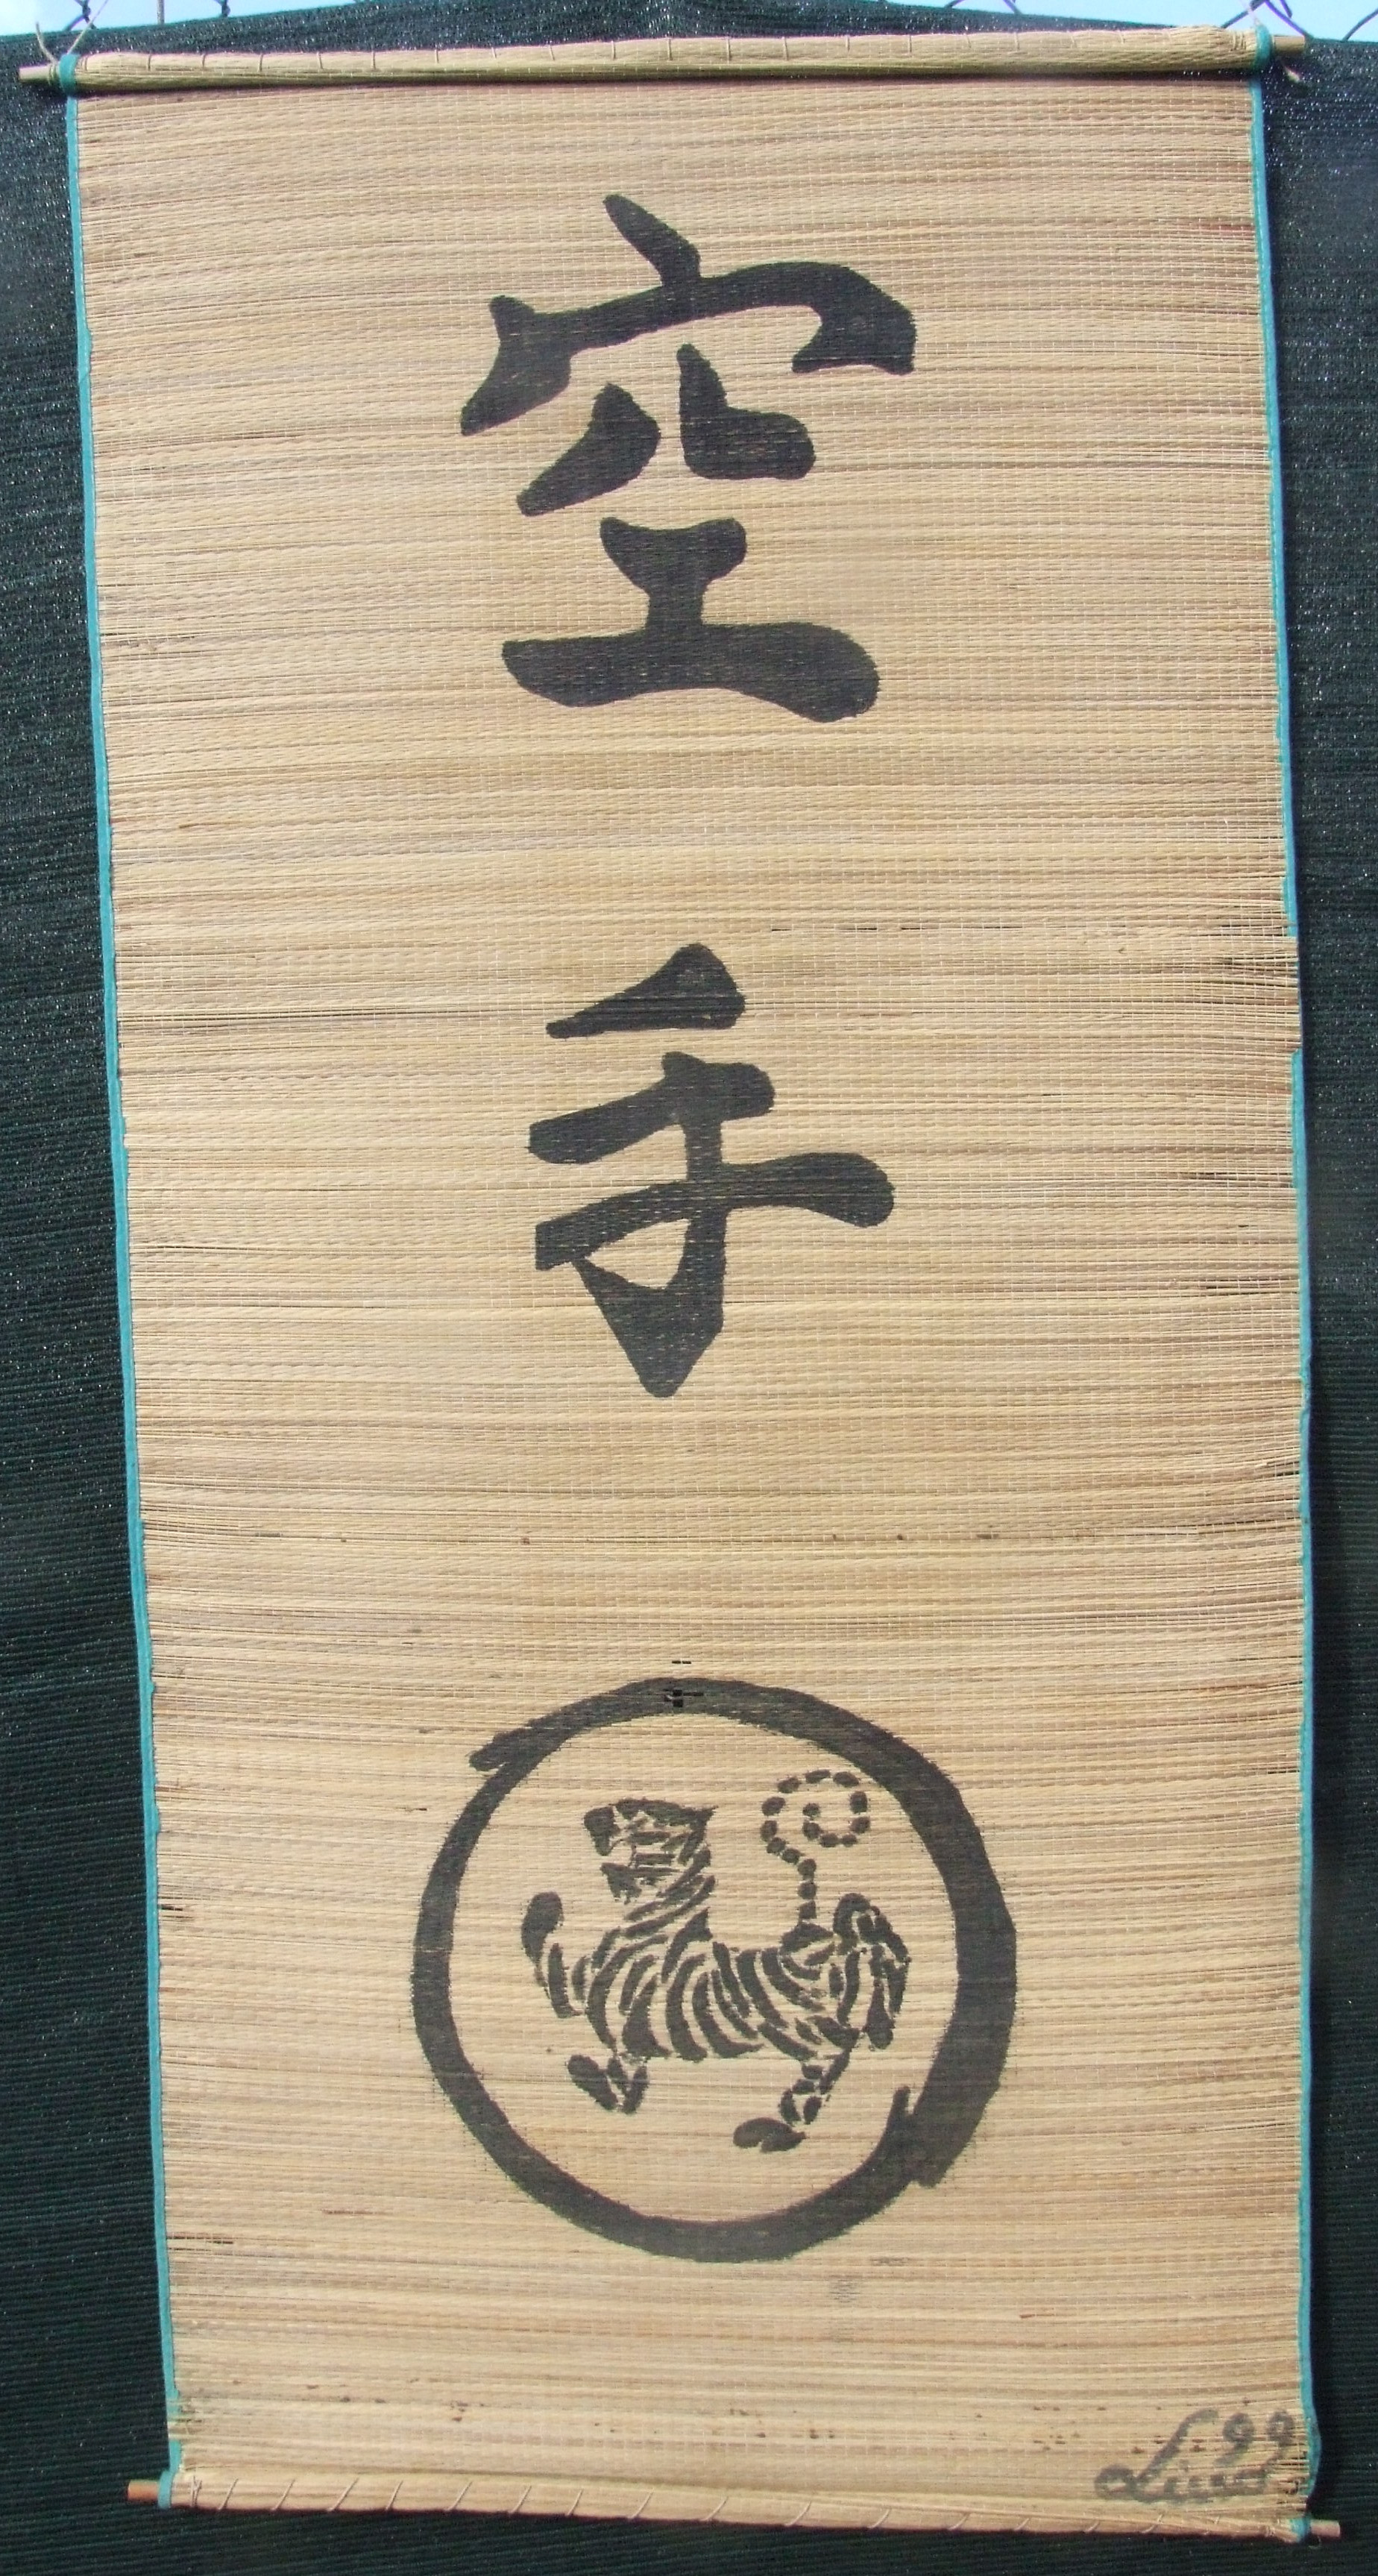 空
手
99